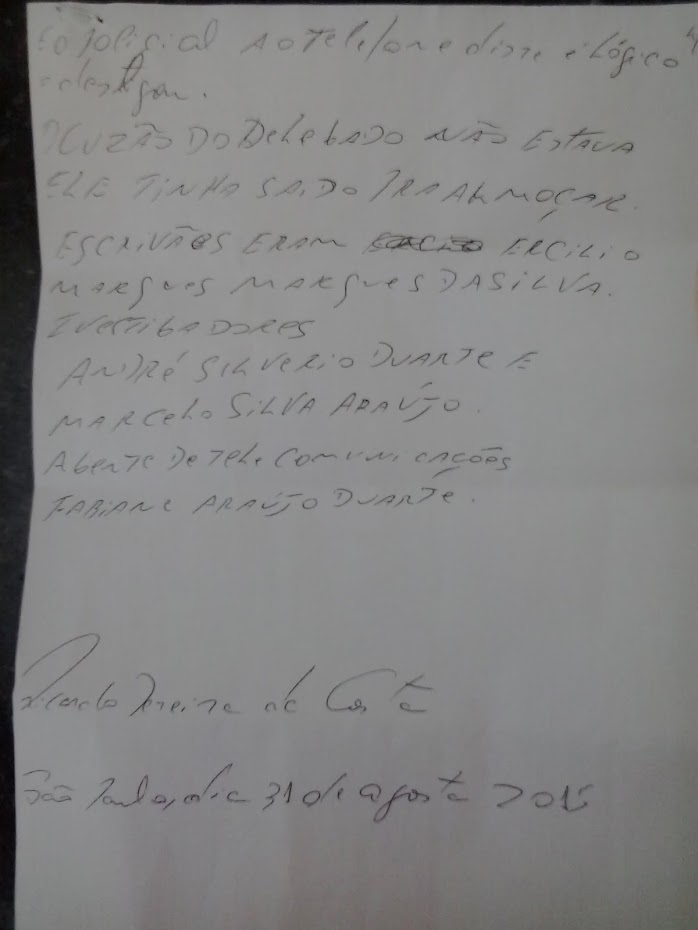 policial ao telefone disse é lógico 4
e desligou.
O CUZÃO DO DELEGADO NÃO ESTAVA
ELE TINHA SAIDO PRA ALMOÇAR.
ESCRIVÃES ERAM ERCILIO
MARQUES MARQUES DA SILVA.
IVESTIGADORES
ANDRÉ SILVERIO DUARTE E
MARCELO SILVA ARAÚJO.
AGENTE DE TELECOMUNICAÇÕES
FABIANE ARAÚJO DUARTE.
Ricardo Pereira da Costa
São Paulo, dia 31 de agosto